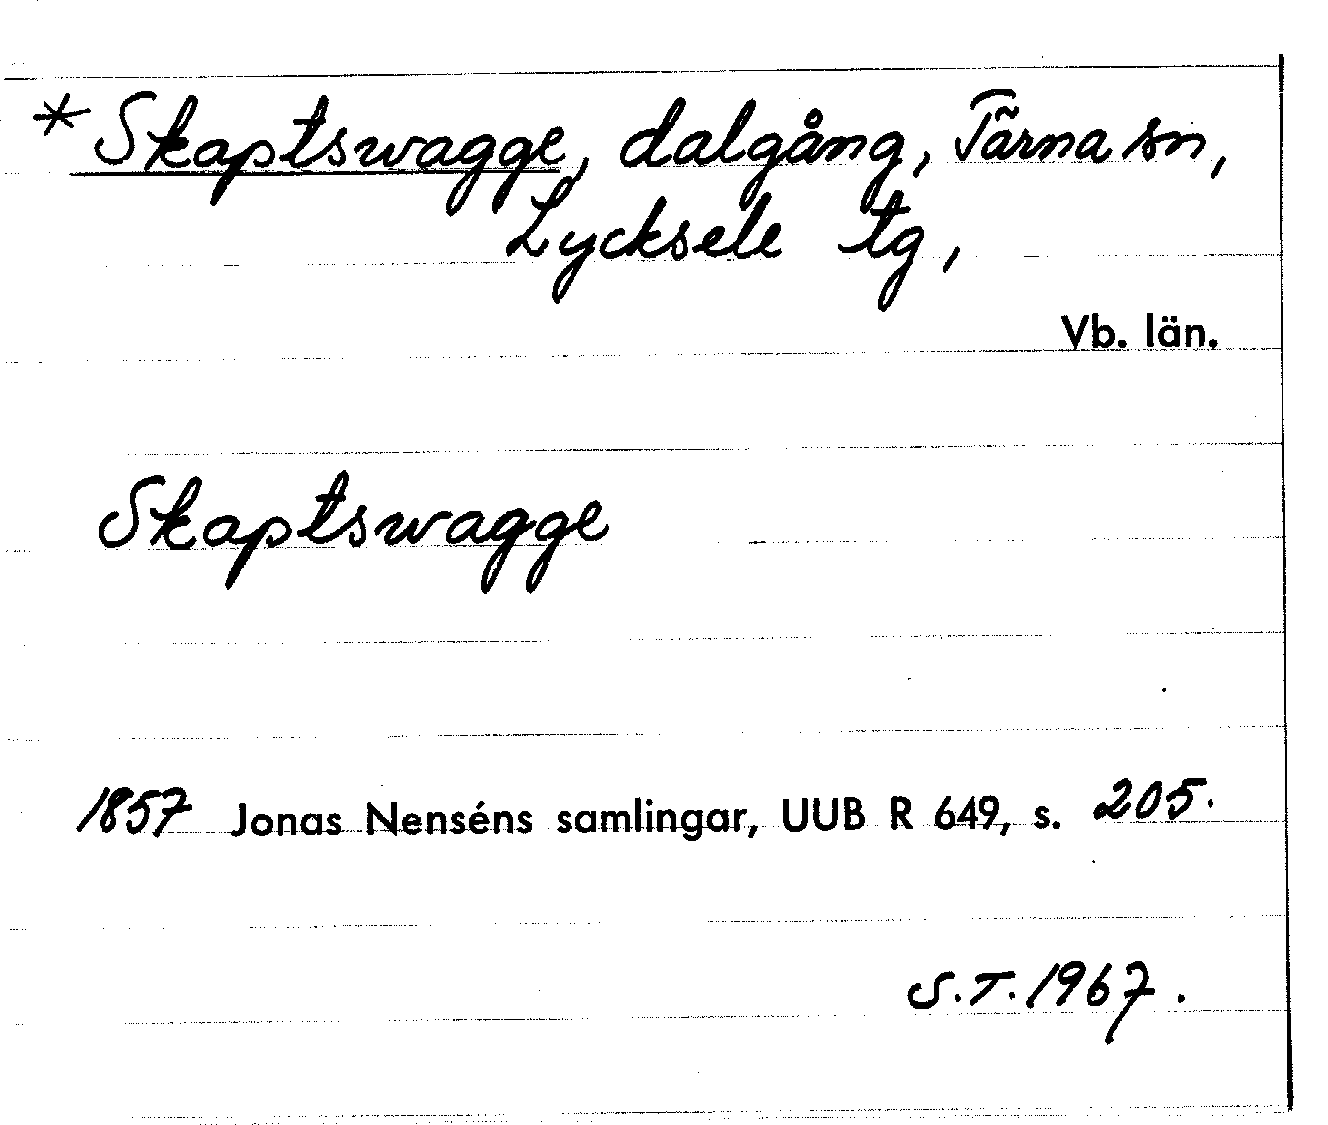 *Skaptswagge, dalgång, Tärna sn,
Lycksele tg,
Vb. län.
Skaptswagge
1857 Jonas Nenséns samlingar, UUB R 649, s. 205.
S.T. 1967.